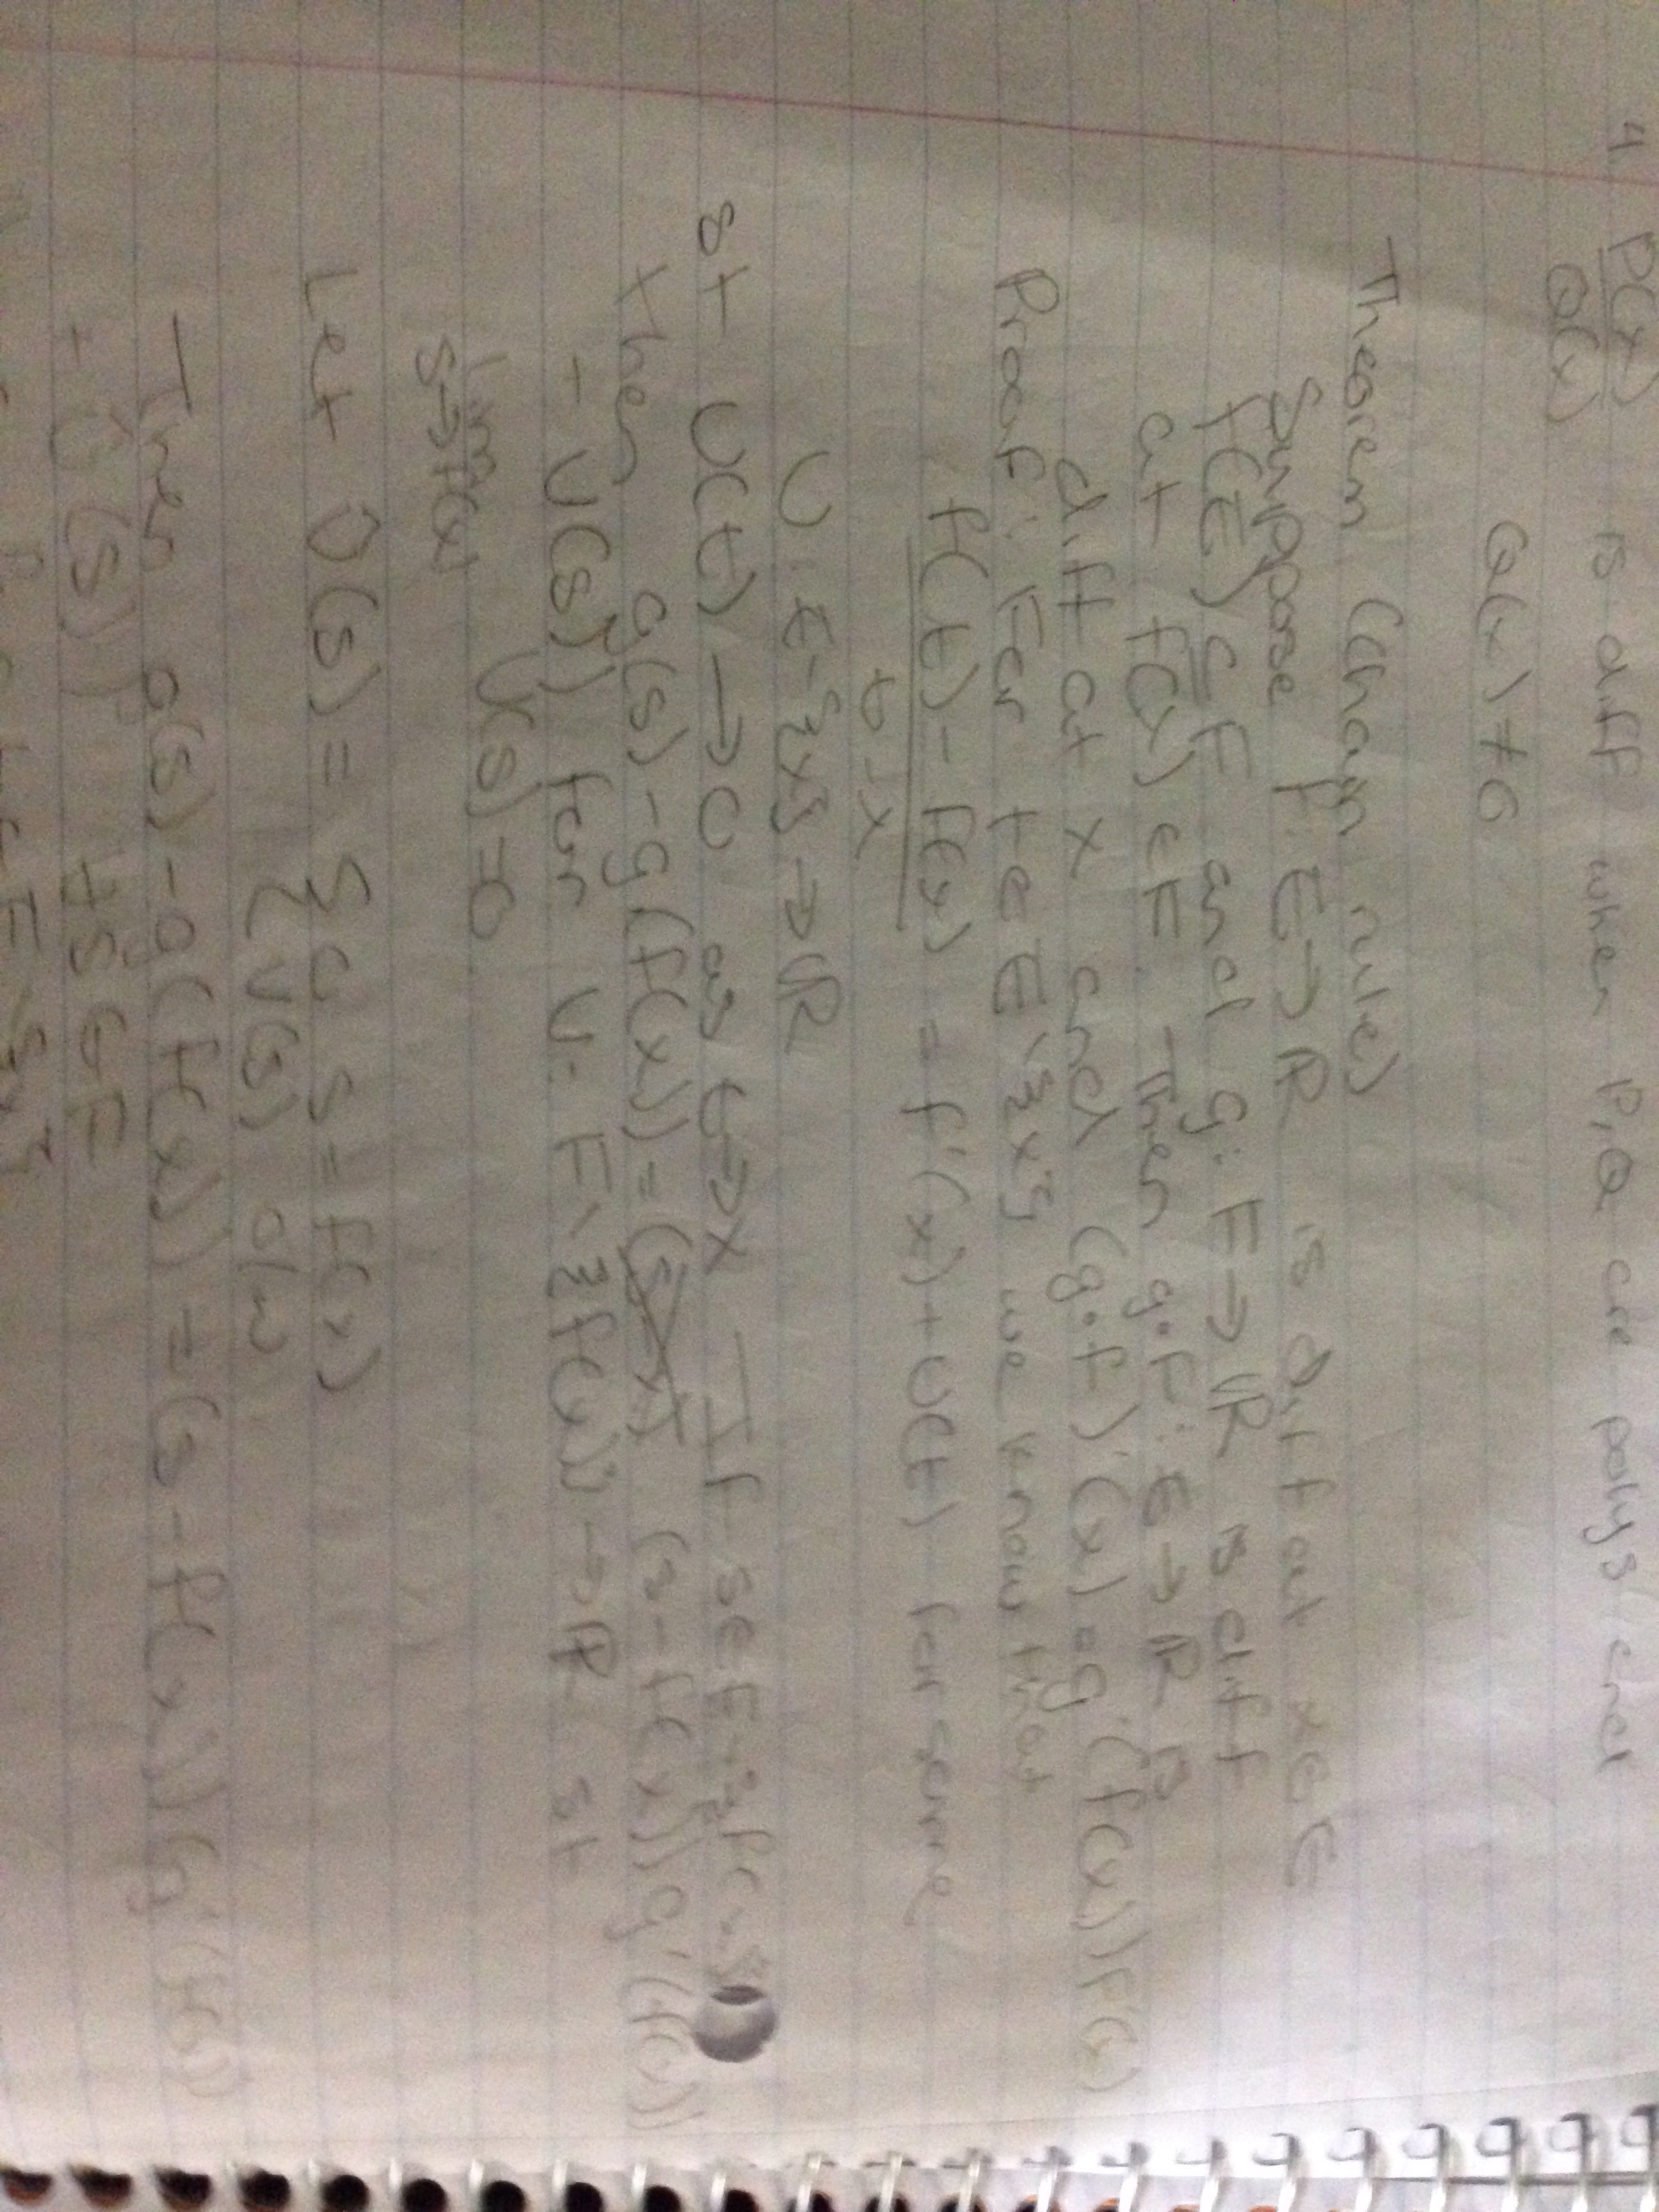 4. P(x)/Q(x) is diff when P,Q are polys and
Q(x) ≠ 0
Theorem (Chain rule)
Suppose f: E → ℝ is diff at x∈E
f(E) ⊆ F and g: F → ℝ is diff
at f(x) ∈ F. Then g∘f: E → ℝ is
diff at x and (g∘f)'(x) = g'(f(x))f'(x)
Proof: For t∈E∖{x} we know that
f(t) - f(x) / t - x = f'(x) + U(t) for some
U: E∖{x} → ℝ
st U(t) → 0 as t → x If s∈F∖{f(x)}
then g(s) - g(f(x)) = (s - f(x))(g'(f(x))
- V(s)) for V: F∖{f(x)} → ℝ st
lim s→f(x) V(s) = 0
Let Ṽ(s) = { 0 s = f(x)
{ V(s) o/w
Then g(s) - g(f(x)) = (s - f(x))(g'(f(x))
+ Ṽ(s)) ∀s∈F